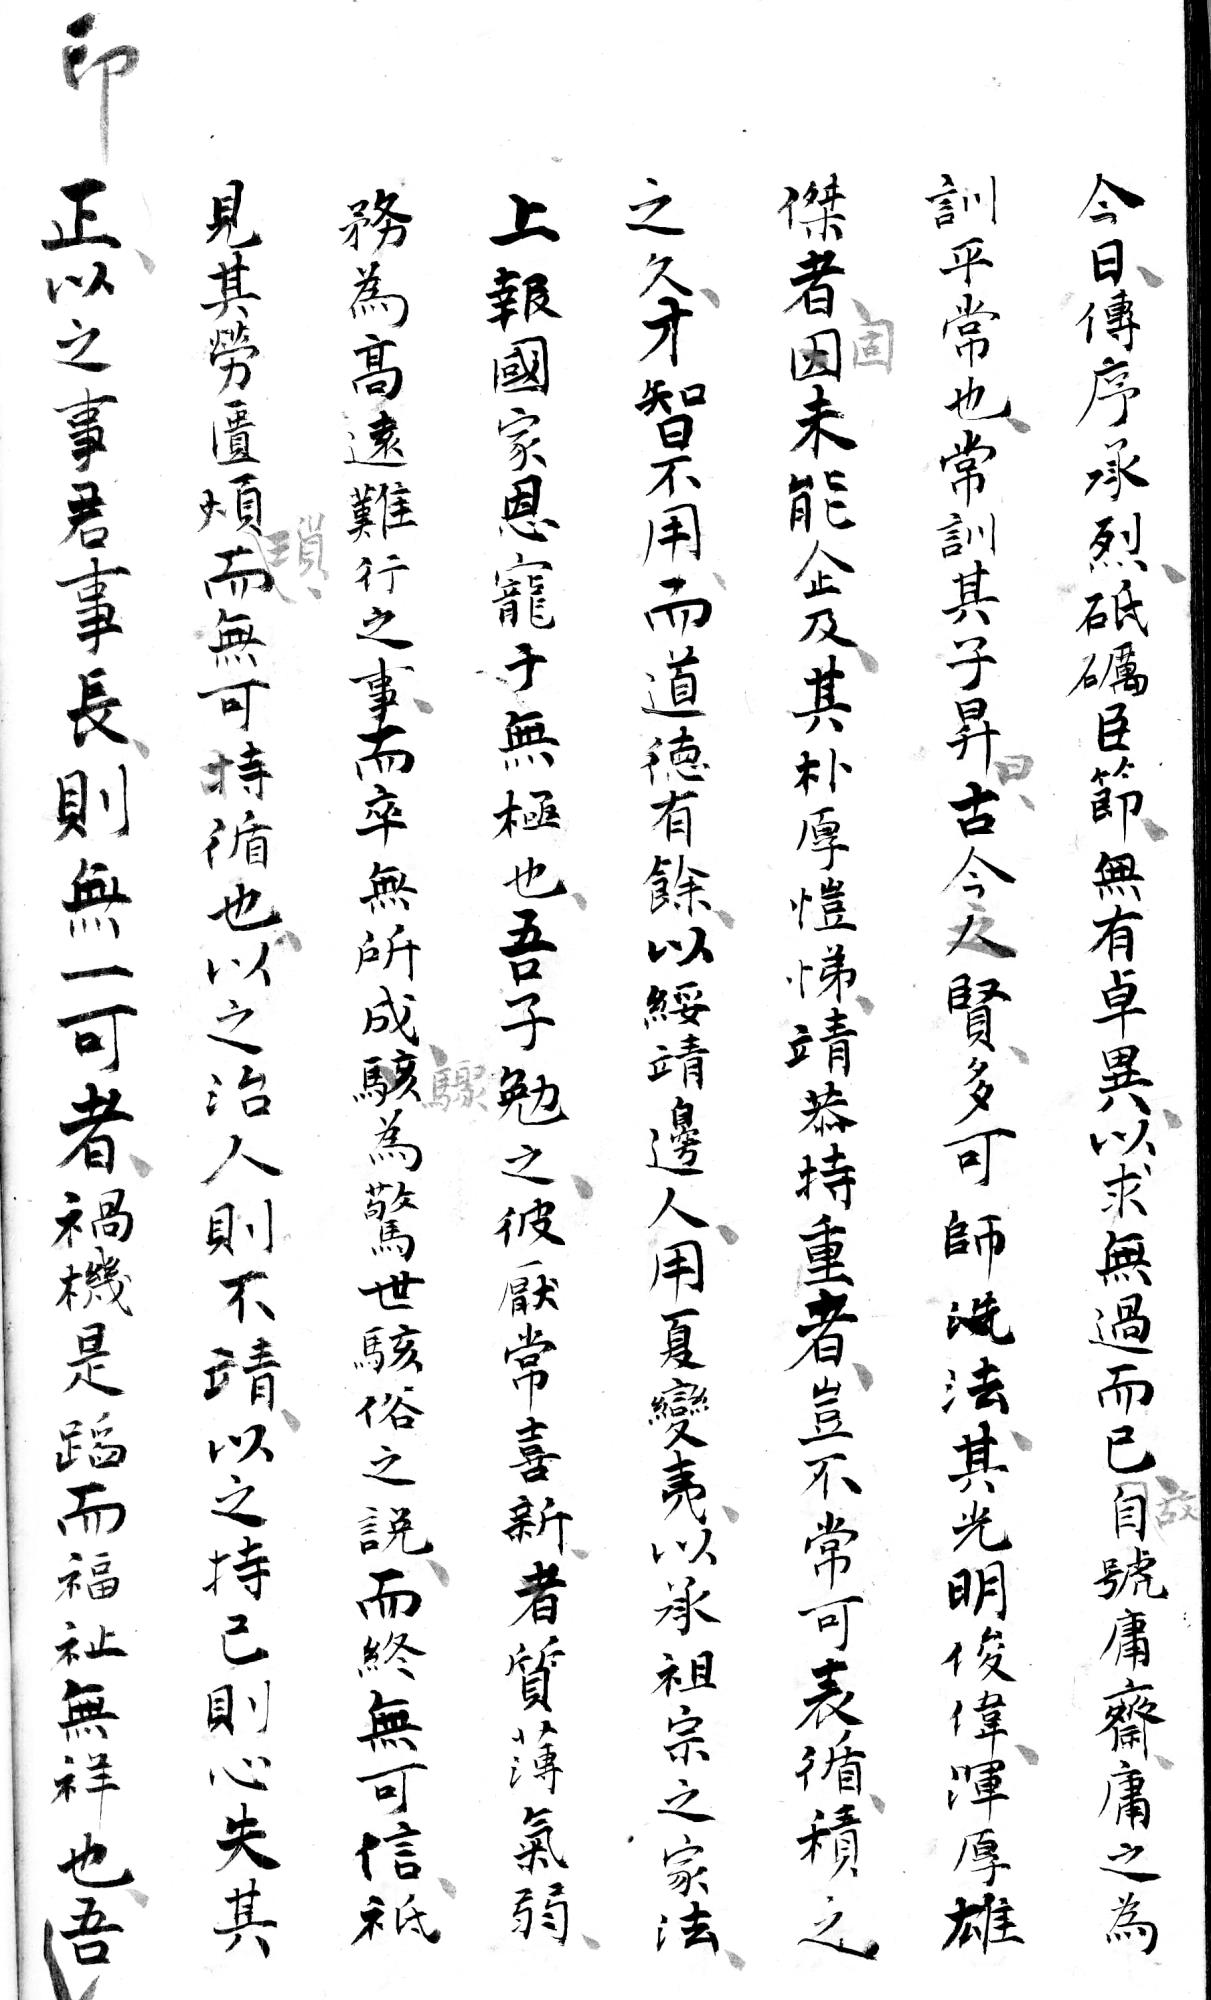 今日傳序承烈砥礪臣節無有卓異以求無過而已自號庸齋庸之為
故
訓平常也常訓其子昇古今人賢多可師洗法其光明俊偉渾厚雄
曰
之
傑者因未能企及其朴厚愷悌靖恭持重者豈不常可表循積之
固
之久才智不用而道德有餘以綏靖邊人用夏變夷以承祖宗之家法
上報國家恩寵于無極也吾子勉之彼厭常喜新者質薄氣弱
務為高遠難行之事而卒無所成駭為驚世駭俗之説而終無可信祗
驟
見其勞匱煩而無可持循也以之治人則不靖以之持己則心失其
瑣
正以之事君事長則無一可者禍機是蹈而福祉無祥也吾
印